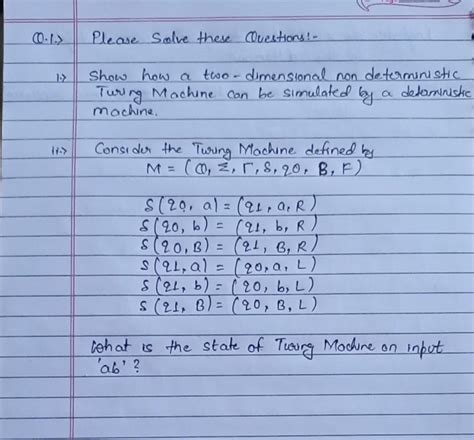 Q.1.> Please Solve these Questions:-
i.> Show how a two-dimensional non deterministic
Turing Machine can be simulated by a deterministic
machine.
ii.> Consider the Turing Machine defined by
M = (Q, Σ, Γ, δ, q0, B, F)
δ(q0, a) = (q1, a, R)
δ(q0, b) = (q1, b, R)
δ(q0, B) = (q1, B, R)
δ(q1, a) = (q0, a, L)
δ(q1, b) = (q0, b, L)
δ(q1, B) = (q0, B, L)
What is the state of Turing Machine on input
'ab'?